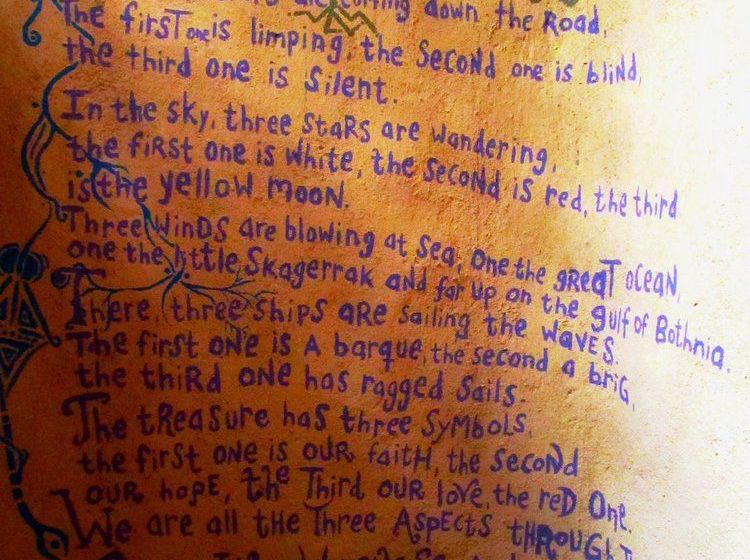 are coming down the Road,
The first one is limping, the Second one is blind,
the third one is Silent.
In the sky, three stars are wandering,
the first one is white, the second is red, the third
is the yellow moon.
Three winds are blowing at sea, one the great ocean,
one the little Skagerrak and far up on the gulf of Bothnia.
There, three ships are sailing the waves.
The first one is a barque, the second a brig,
the third one has ragged sails.
The treasure has three symbols,
the first one is our faith, the second
our hope, the Third our love, the red One.
We are all the Three Aspects through